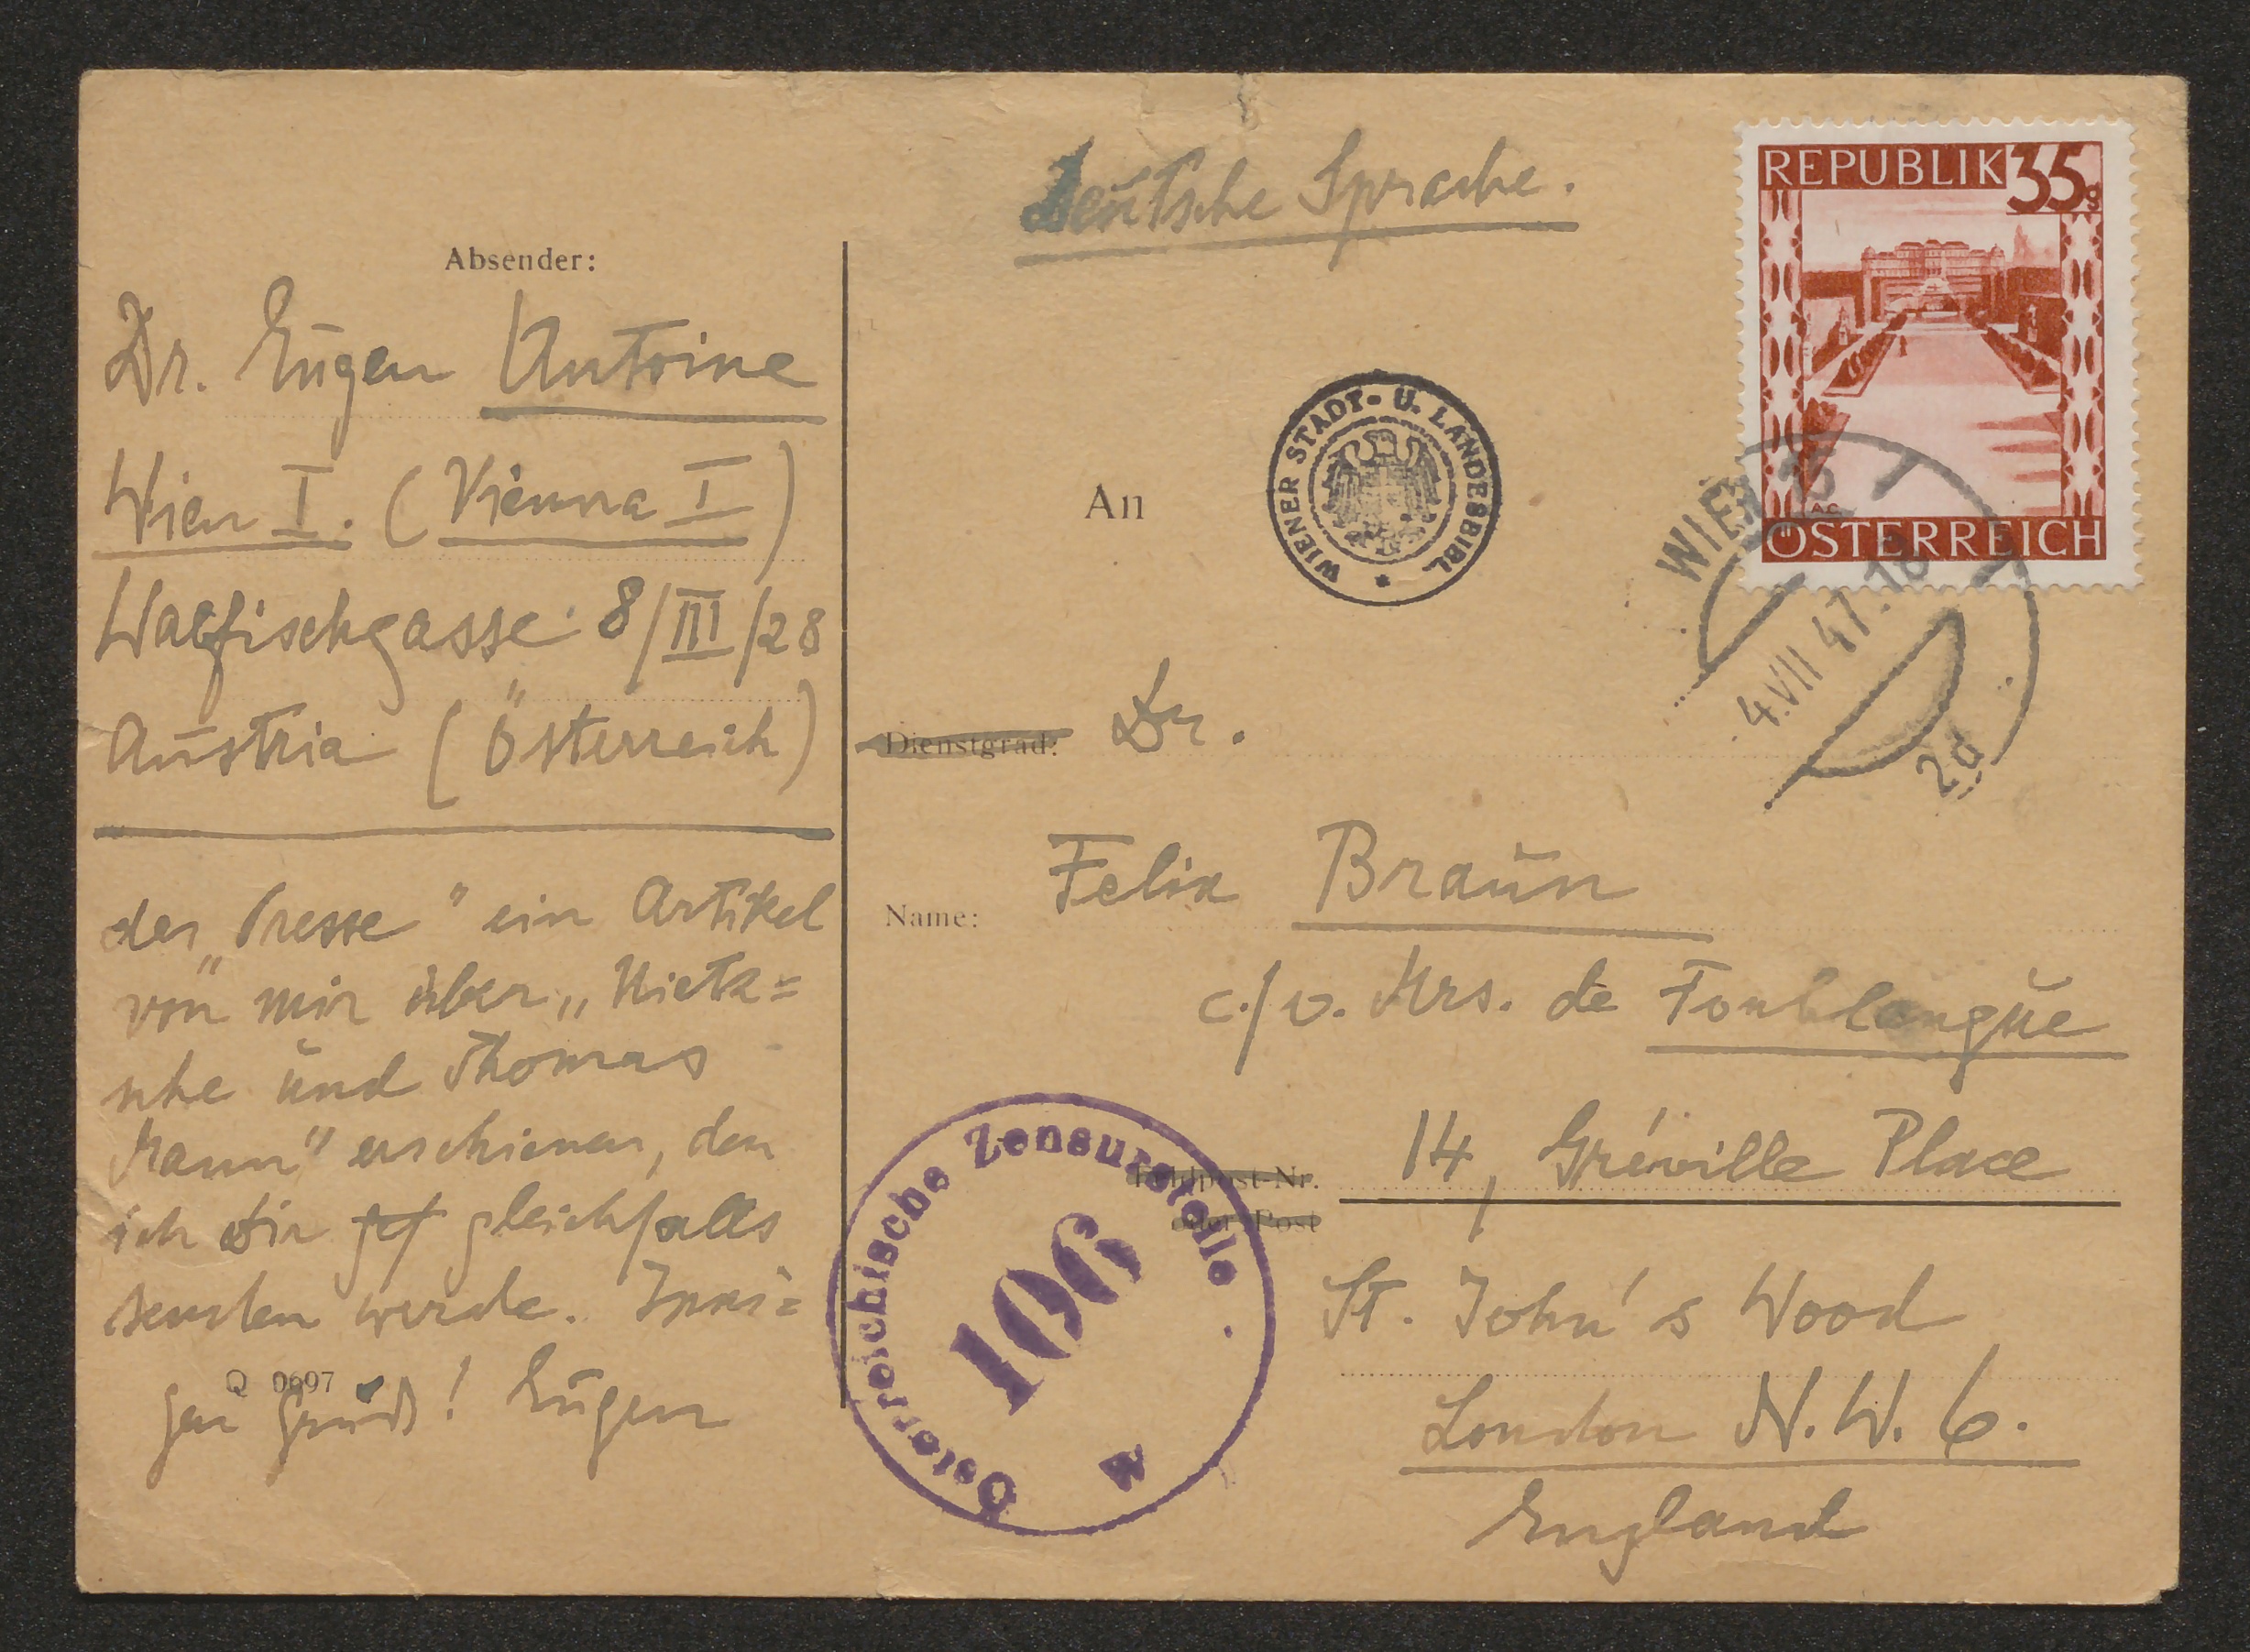 Deutsche Sprache.
REPUBLIK 35g
ÖSTERREICH
WIEN 15
4.VII 47.18
2d
WIENER STADT- U. LANDESBIBL.
Absender:
Dr. Eugen Antoine
Wien I. (Vienna I)
Walfischgasse 8/III/28
Austria (Österreich)
der „Presse" ein Artikel
von mir über „Nietz=
sche und Thomas
Mann" erschienen, den
ich Dir gleichfalls
senden werde. Inni=
gen Gruß! Eugen
Q 0697
An
Dienstgrad: Dr.
Name: Felix Braun
c./o. Mrs. de Fonblanque
Feldpost-Nr. 14, Gréville Place
oder Post
St. John's Wood
London N.W. 6.
England
Österreichische Zensurstelle
106
W